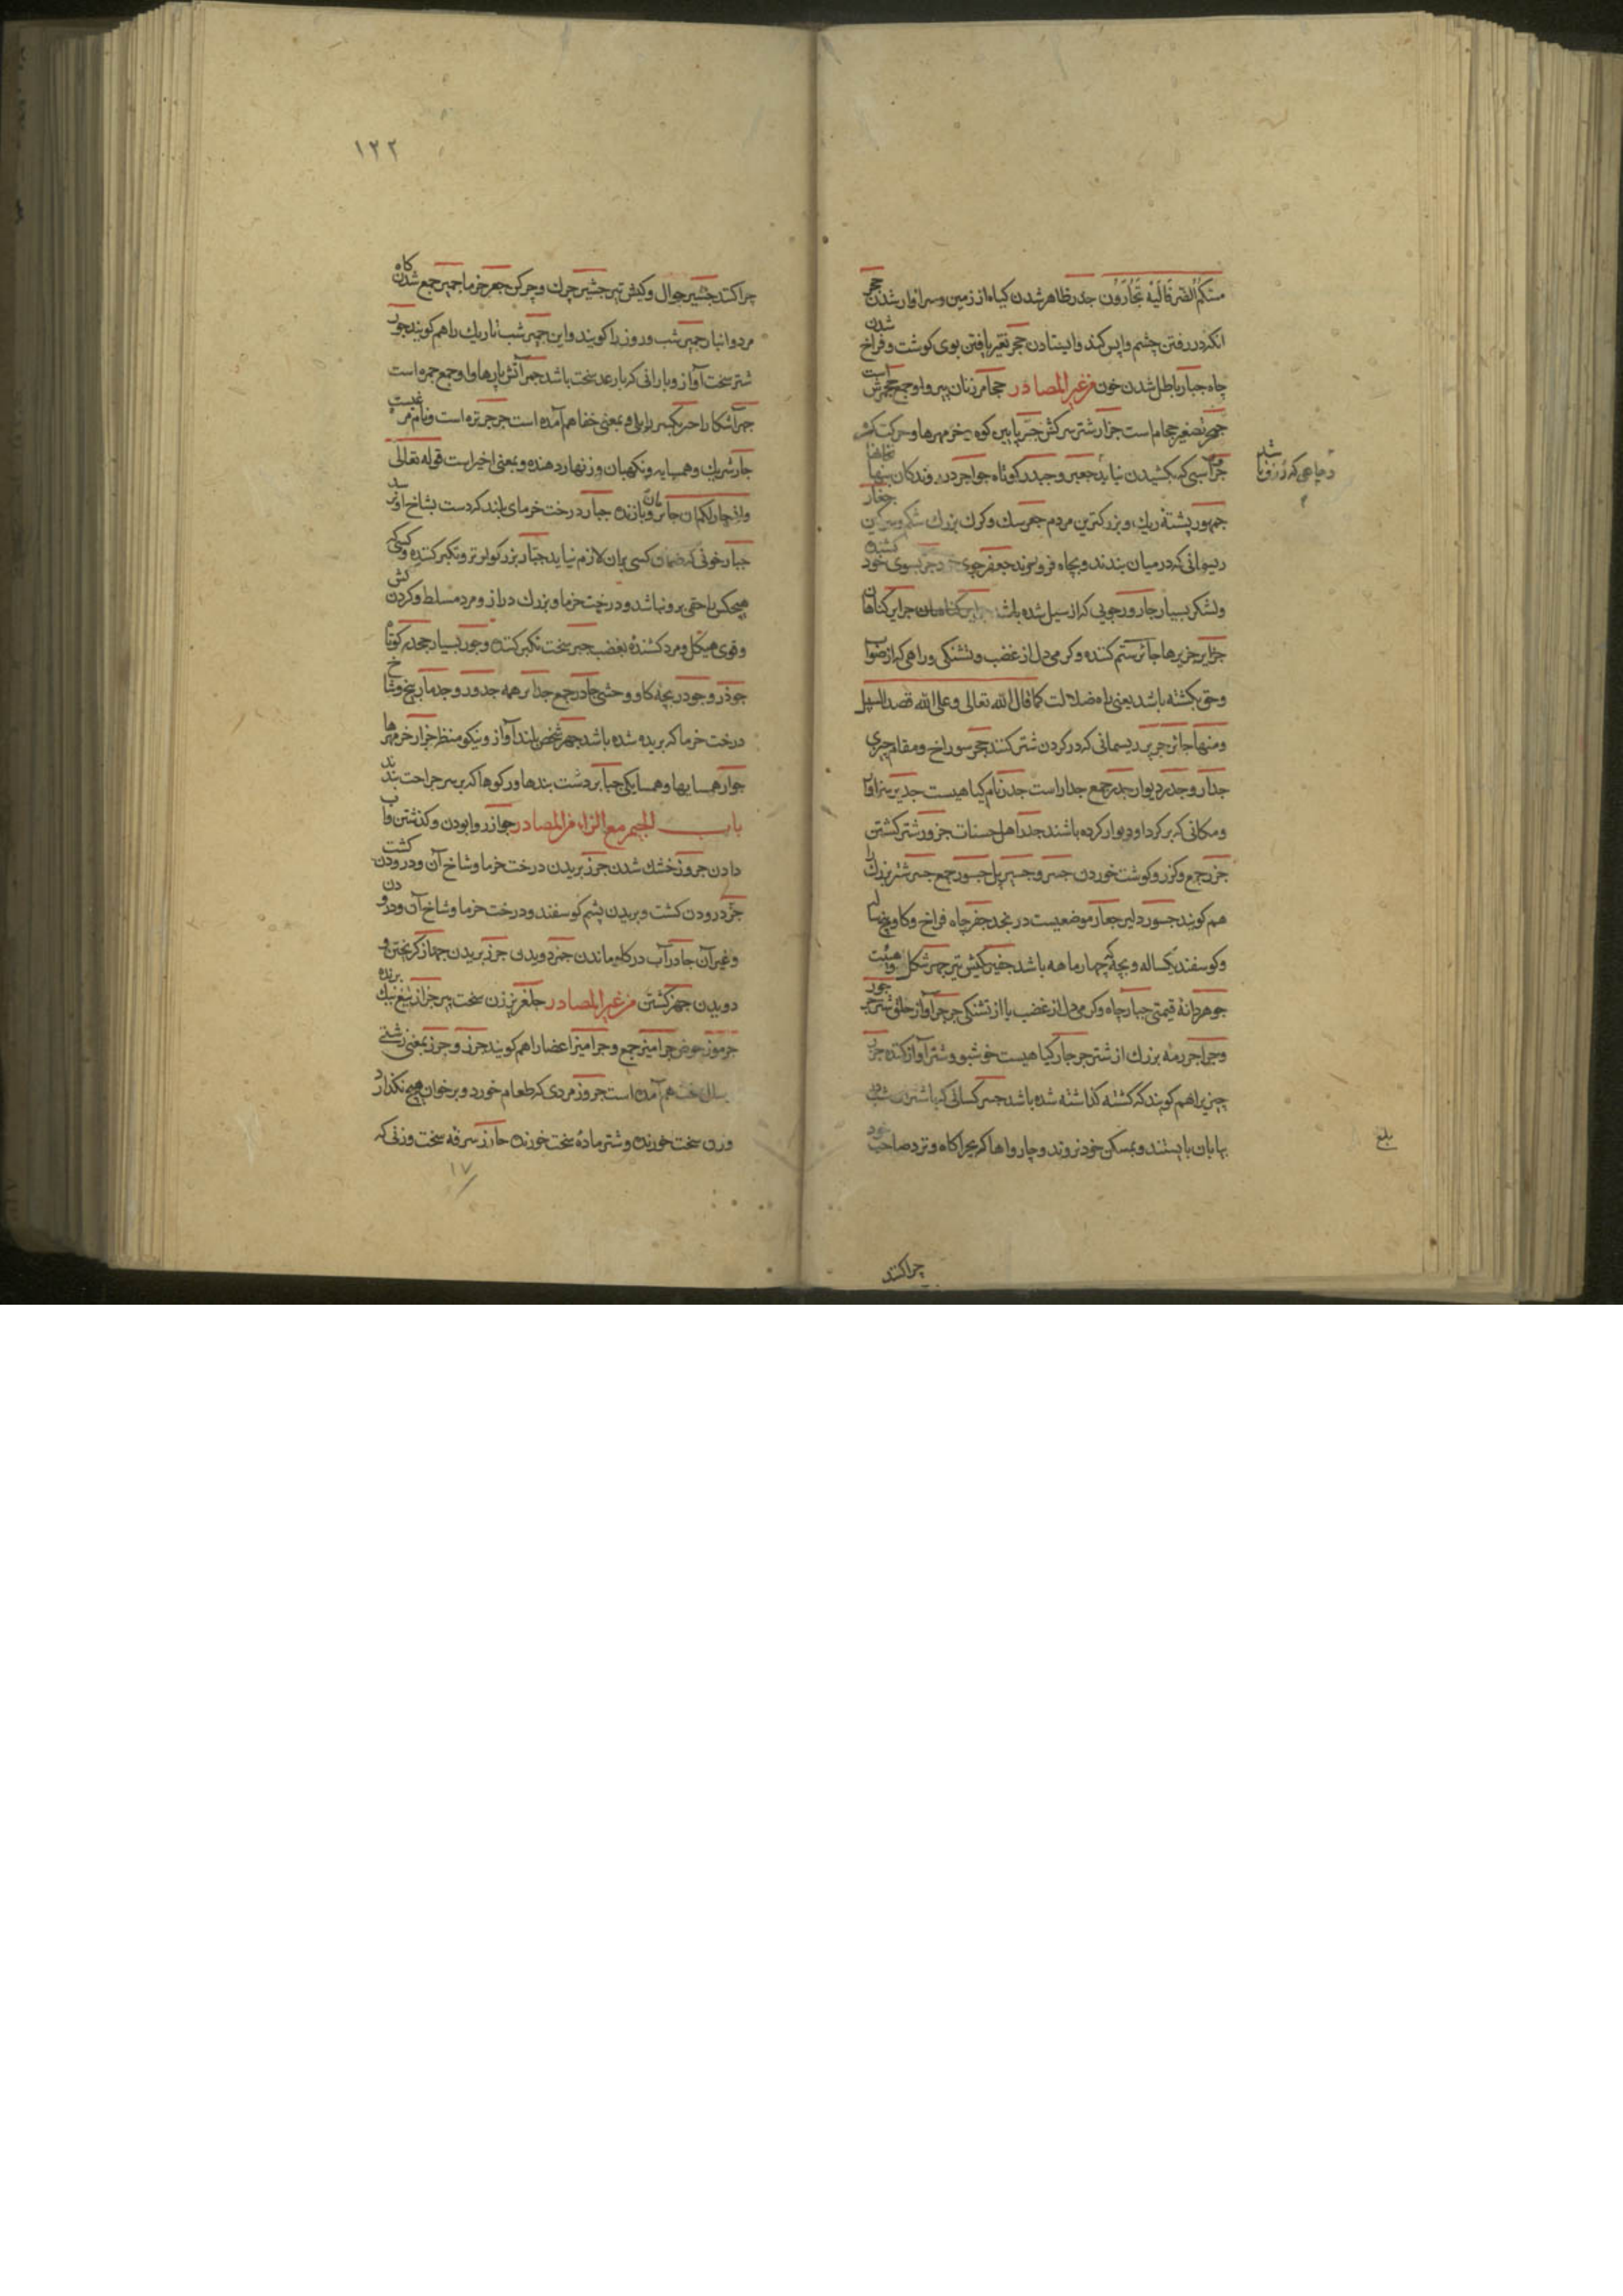 مسّكم الضر فاليه تجأرون جدر ظاهر شدن کیاه از زمین و سزاوار شدن حجر
انکور رفتن چشم واپس کند و ایستادن حجر تغیر یافتن بوی کوشت و فراخ شدن
چاه جبار باطل شدن خون من غیر المصادر حجامر زنان پیر و او جمع حجمرش است
جحمر تصغیر حجام است جزار شتر سرکش جر پایین کوه خر مهرها و حرکت
اسبی که بکشیدن نیاید جعبر و جیدر کوتاه جواجر در روندکان
جمهور پشتۀ ریك و بزرکترین مردم جعر سك و کرك بزرك جغار
ریسمانی که در میان بندند و بچاه فرو شوند جعفر جوی جر بسوی خود کشنده
و لشکر بسیار جارور جویی که از سیل شده باشد جرایر کناهان
جزایر جزیرها جائر ستم کننده و کرمی دل از غضب و تشنکی و راهی که از صواب
و حق بکشته باشد یعنی راه ضلالت کما قال الله تعالی و علی الله قصد السبیل
و منها جائر جریر ریسمانی که در کردن شتر کنند جحر سوراخ و مقام چیزی
جدار و جدر دیوار جدر جمع جدار است جدر نام کیاهیست جدیر سزاوار
و مکانی که بر کرد او دیوار کرده باشند جدر اهل حسنات جزور شتر کشتن
جزر جمع و کزر و کوشت خوردن جسر و جسر پل جسور جمع جسر شتر بزرك را
هم کویند جسور دلیر جعار موضعیست در نجد جفر چاه فراخ و کاو
و کوسفند یکساله و بچۀ که چهار ماهه باشد جفیر کیش تیر جهر شکل و هیئت
جوهر دانۀ قیمتی جبار چاه و کرمی دل از غضب یا از تشنکی جرجر آواز حلق شتر
و جراجر رمۀ بزرك از شتر جرجار کیاهیست خوشبو و شتر آواز کننده
چیز یرا هم کویند که کشته کذاشته شده باشد جشر کسانی که با شتران
بیابان بایستند و بمسکن خود نروند و چارواها که بچراکاه و نزد صاحب خود
بلغ
چرا کنند
١٢٢
چرا کنند جشیر جوال و کیش تیر جشیر چرك و چرکن جمر خرما جمیر جمع شدن کاه
مرد و انبار جمیر شب و روز را کویند و ابن جمیر شب تاریك را هم کویند جور
شتر سخت آواز و بارانی که با رعد سخت باشد جمر آتش پارها و او جمع جمره است
جهر آشکارا جر بمعنی خفا هم آمده است جرجر تره است و نام
جار شریك و همسایه و نکهبان و زنهار دهنده و بمعنی اخیر است قوله تعالی
و انی جار لکم ان جائر و یا زنده جبار درخت خرمای بلند که دست بشاخ او نرسد
جبار خونی که ضمان کسی بران لازم نیاید جبار بزرکوار تر و تکبر کننده و کسی که
هیچکس را حقی برو نباشد و درخت خرما و بزرك دراز و مرد مسلط و کردن کش
و قوی هیکل و مرد کشندۀ بغضب جبر سخت تکبر کننده و جور بسیار جحدر کوتاه
جوذر و جودر بچۀ کاو وحشی جآذر جمع جدائر همه جدور و جدمار بیخ و شاخ
درخت خرما که بریده شده باشد جهر شخص بلند آواز و نیکو منظر خرار خرمهرها
جوار همسایها و همسایکی جبایر دست بندها و رکوها که بر سر جراحت بندند
باب الجیم مع الزاء من المصادر جواز روا بودن و کذشتن و آب
دادن جروز خشك شدن جرز بریدن درخت خرما و شاخ آن و درودن کشت
جز درودن کشت و بریدن پشم کوسفند و درخت خرما و شاخ آن و درودن
و غیر آن جأز آب در کلو ماندن جمز دویدن جرز بریدن جماز کریختن و
دویدن جهز کشتن من غیر المصادر جلفزیز زن سخت پیر جراز تیغ نیك برنده
جرموز حوض جرامیز جمع و جرامیز اعضا را هم کویند جرز و جرز بمعنی زشتی
سال سخت هم آمده است جروز مردی که طعام خورد و بر خوان هیچ نکذارد
و زن سخت خورنده و شتر مادۀ سخت خورنده جارز سرفه سخت و زنی که
١٧